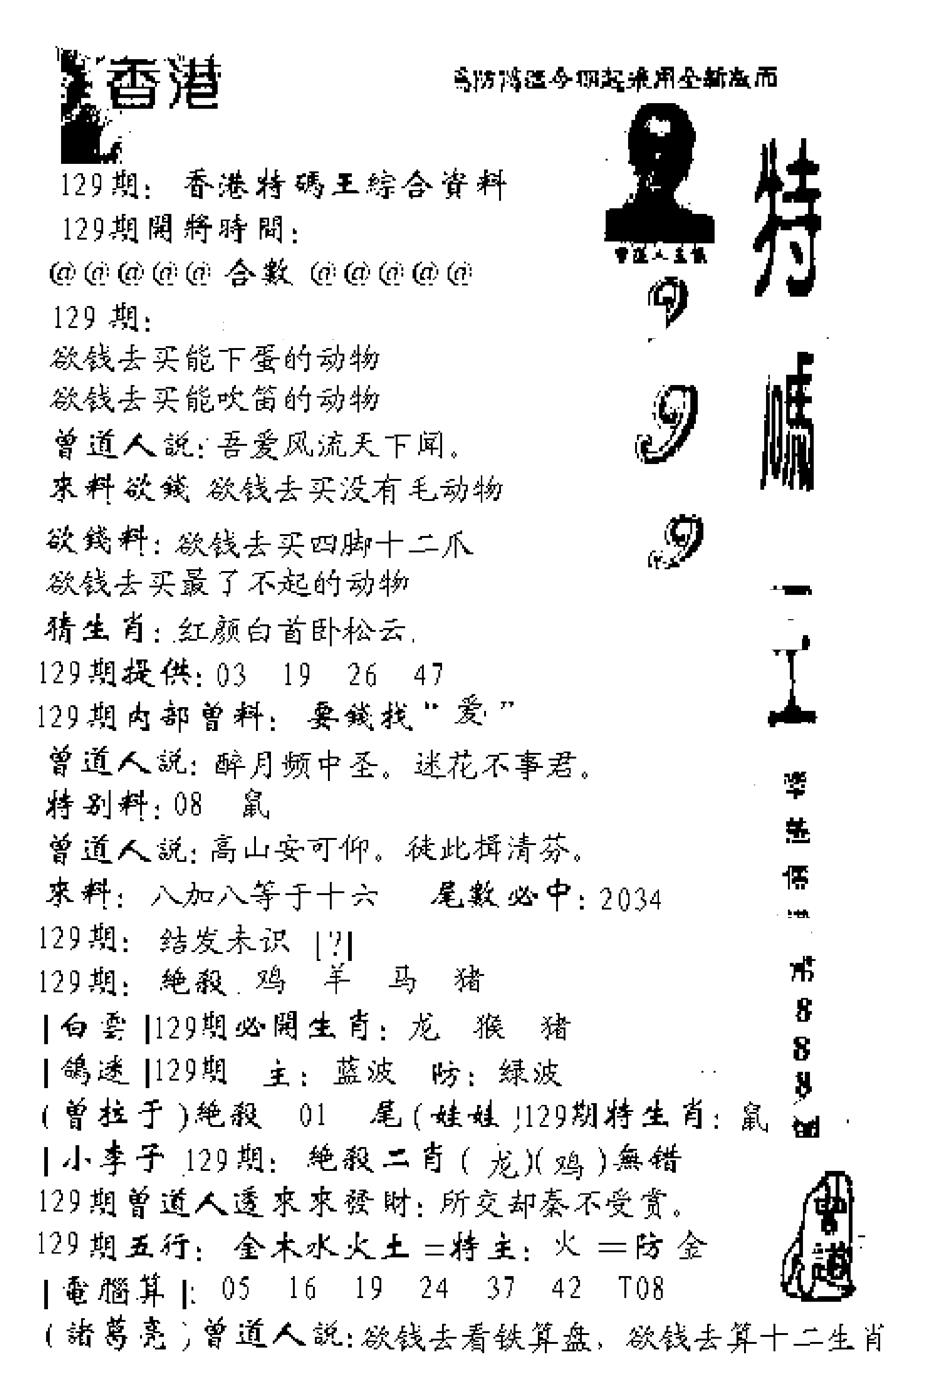 香港
129期：香港特碼王綜合資料
129期開將時間：
@@@@@合數@@@@@
129期：
欲钱去买能下蛋的动物
欲钱去买能吹笛的动物
曾道人説：吾爱风流天下闻。
來料欲錢 欲钱去买没有毛动物
欲錢料：欲钱去买四脚十二爪
欲钱去买最了不起的动物
猜生肖：红颜白首卧松云.
129期提供：03 19 26 47
129期内部曾料：要錢找“爱”
曾道人説：醉月频中圣。迷花不事君。
特别料：08 鼠
曾道人説：高山安可仰。徒此揖清芬。
來料：八加八等于十六 尾數必中：2034
129期：结发未识 [?]
129期：絶殺 鸡 羊 马 猪
|白雲|129期必開生肖：龙 猴 猪
|鴿迷|129期 主：蓝波 防：绿波
(曾拉于)絶殺 01 尾(娃娃)129期特生肖：鼠
|小李子 129期：絶殺二肖(龙)(鸡)無错
129期曾道人透來來發財：所交却秦不受赏。
129期五行：金木水火土=特主：火=防金
|電腦算|：05 16 19 24 37 42 T08
(諸葛亮)曾道人説：欲钱去看铁算盘，欲钱去算十二生肖
曾道人主
9
9
9
特
碼
王
8
8
8
曾道